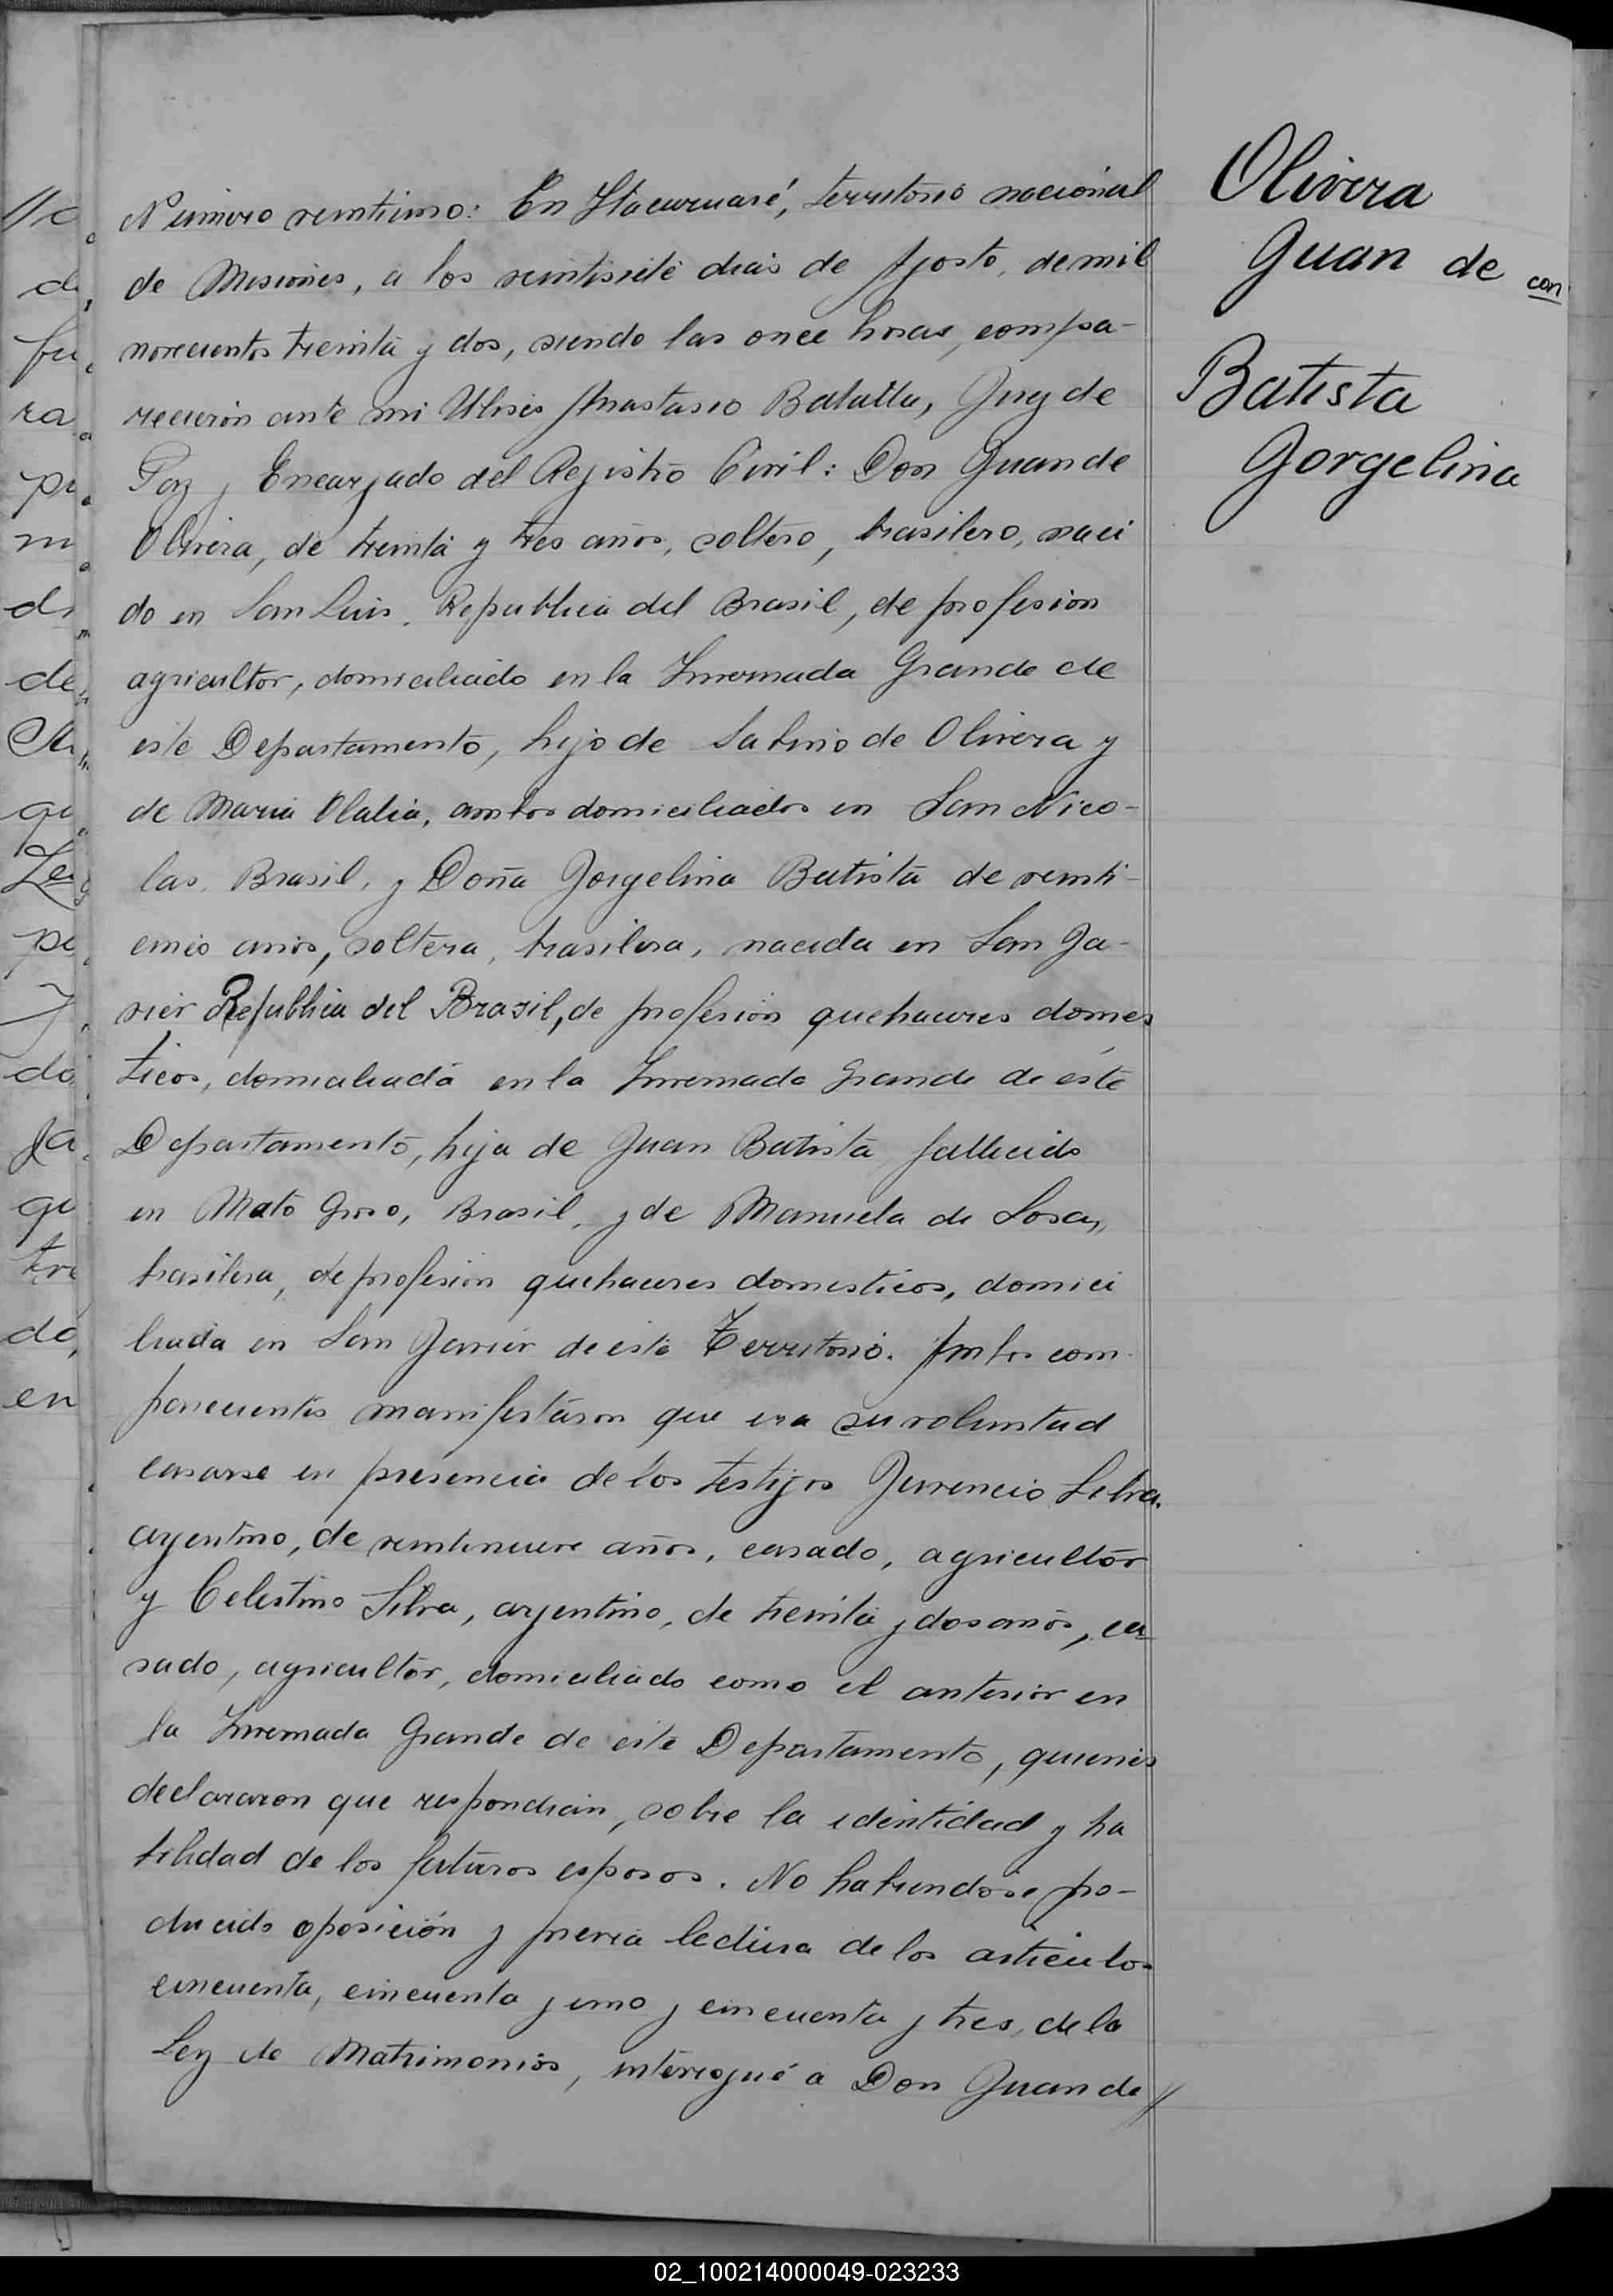 Número veintiuno: En Itacaruaré, territorio nacional
de Misiones, a los veintisiete dias de Agosto, de mil
novecientos treinta y dos, siendo las once horas, compa-
recieron ante mi Ulises Anastasio Batalla, Juez de
Paz y Encargado del Registro Civil: Don Juan de
Olivera, de treinta y tres años, soltero, brasilero, naci
do en San Luis, Republica del Brasil, de profesion
agricultor, domiciliado en la Invernada Grande de
este Departamento, hijo de Sabino de Olivera y
de Maria Olalia, ambos domiciliados en San Nico-
las, Brasil, y Doña Jorgelina Batista de veinti-
cinco anos, soltera, brasilera, nacida en San Ja-
vier Republica del Brasil, de profesión quehaceres domes
ticos, domiciliada en la Invernada Grande de éste
Departamento, hija de Juan Batista fallecido
en Mato Groso, Brasil, y de Manuela de
brasilera, de profesion quehaceres domesticos, domici
liada en San Javier de este Territorio. Ambos com-
parecientes manifestaron que era su voluntad
casarse en presencia de los testigos Juvencio Silva,
argentino, de veintinueve años, casado, agricultor
y Celestino Silva, argentino, de treinta y dos anos, ca
sado, agricultor, domiciliado como el anterior en
la Invernada Grande de este Departamento, quienes
declararon que respondian, sobre la identidad y ha
bilidad de los futuros esposos. No habiendose pro-
ducido oposición y previa lectura de los articulos
cincuenta, cincuenta y uno y cincuenta y tres, de la
Ley de Matrimonios, interrogué a Don Juan de//
Olivera
Juan de con
Batista
Jorgelina
fu
ra
pi
m
di
de
qu
Ley
pe
y
do
ja
qu
tre
do,
en
02_100214000049-023233